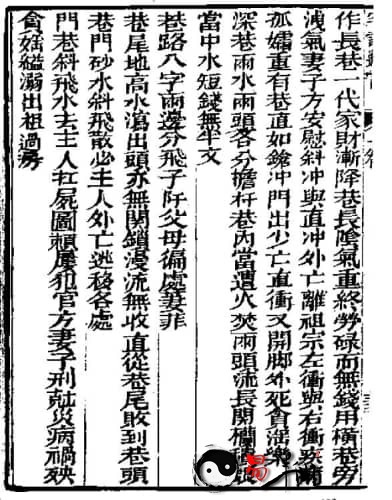 作長巷一代家財漸降巷長陰氣重終勞碌而無錢用橫巷旁
洩氣妻子方安慰斜冲與直冲外亡離祖宗左衝與右衝
孤孀重有巷直如鎗冲門出少亡直衝又開脚外死貪
深巷雨水兩頭各分擔杆巷內當遭火焚兩頭流長開欄
當中水短錢無半文
巷路八字兩邊分飛子阡父母偏處妻非
巷尾地高水瀉出頭亦無関鎖漫流無收直從巷尾敗到巷頭
巷門砂水斜飛散必主人外亡逃移各處
門巷斜飛水去主人扛屍圖賴屢犯官方妻子刑尅災病禍殃
貪婬縊溺出祖過房
易